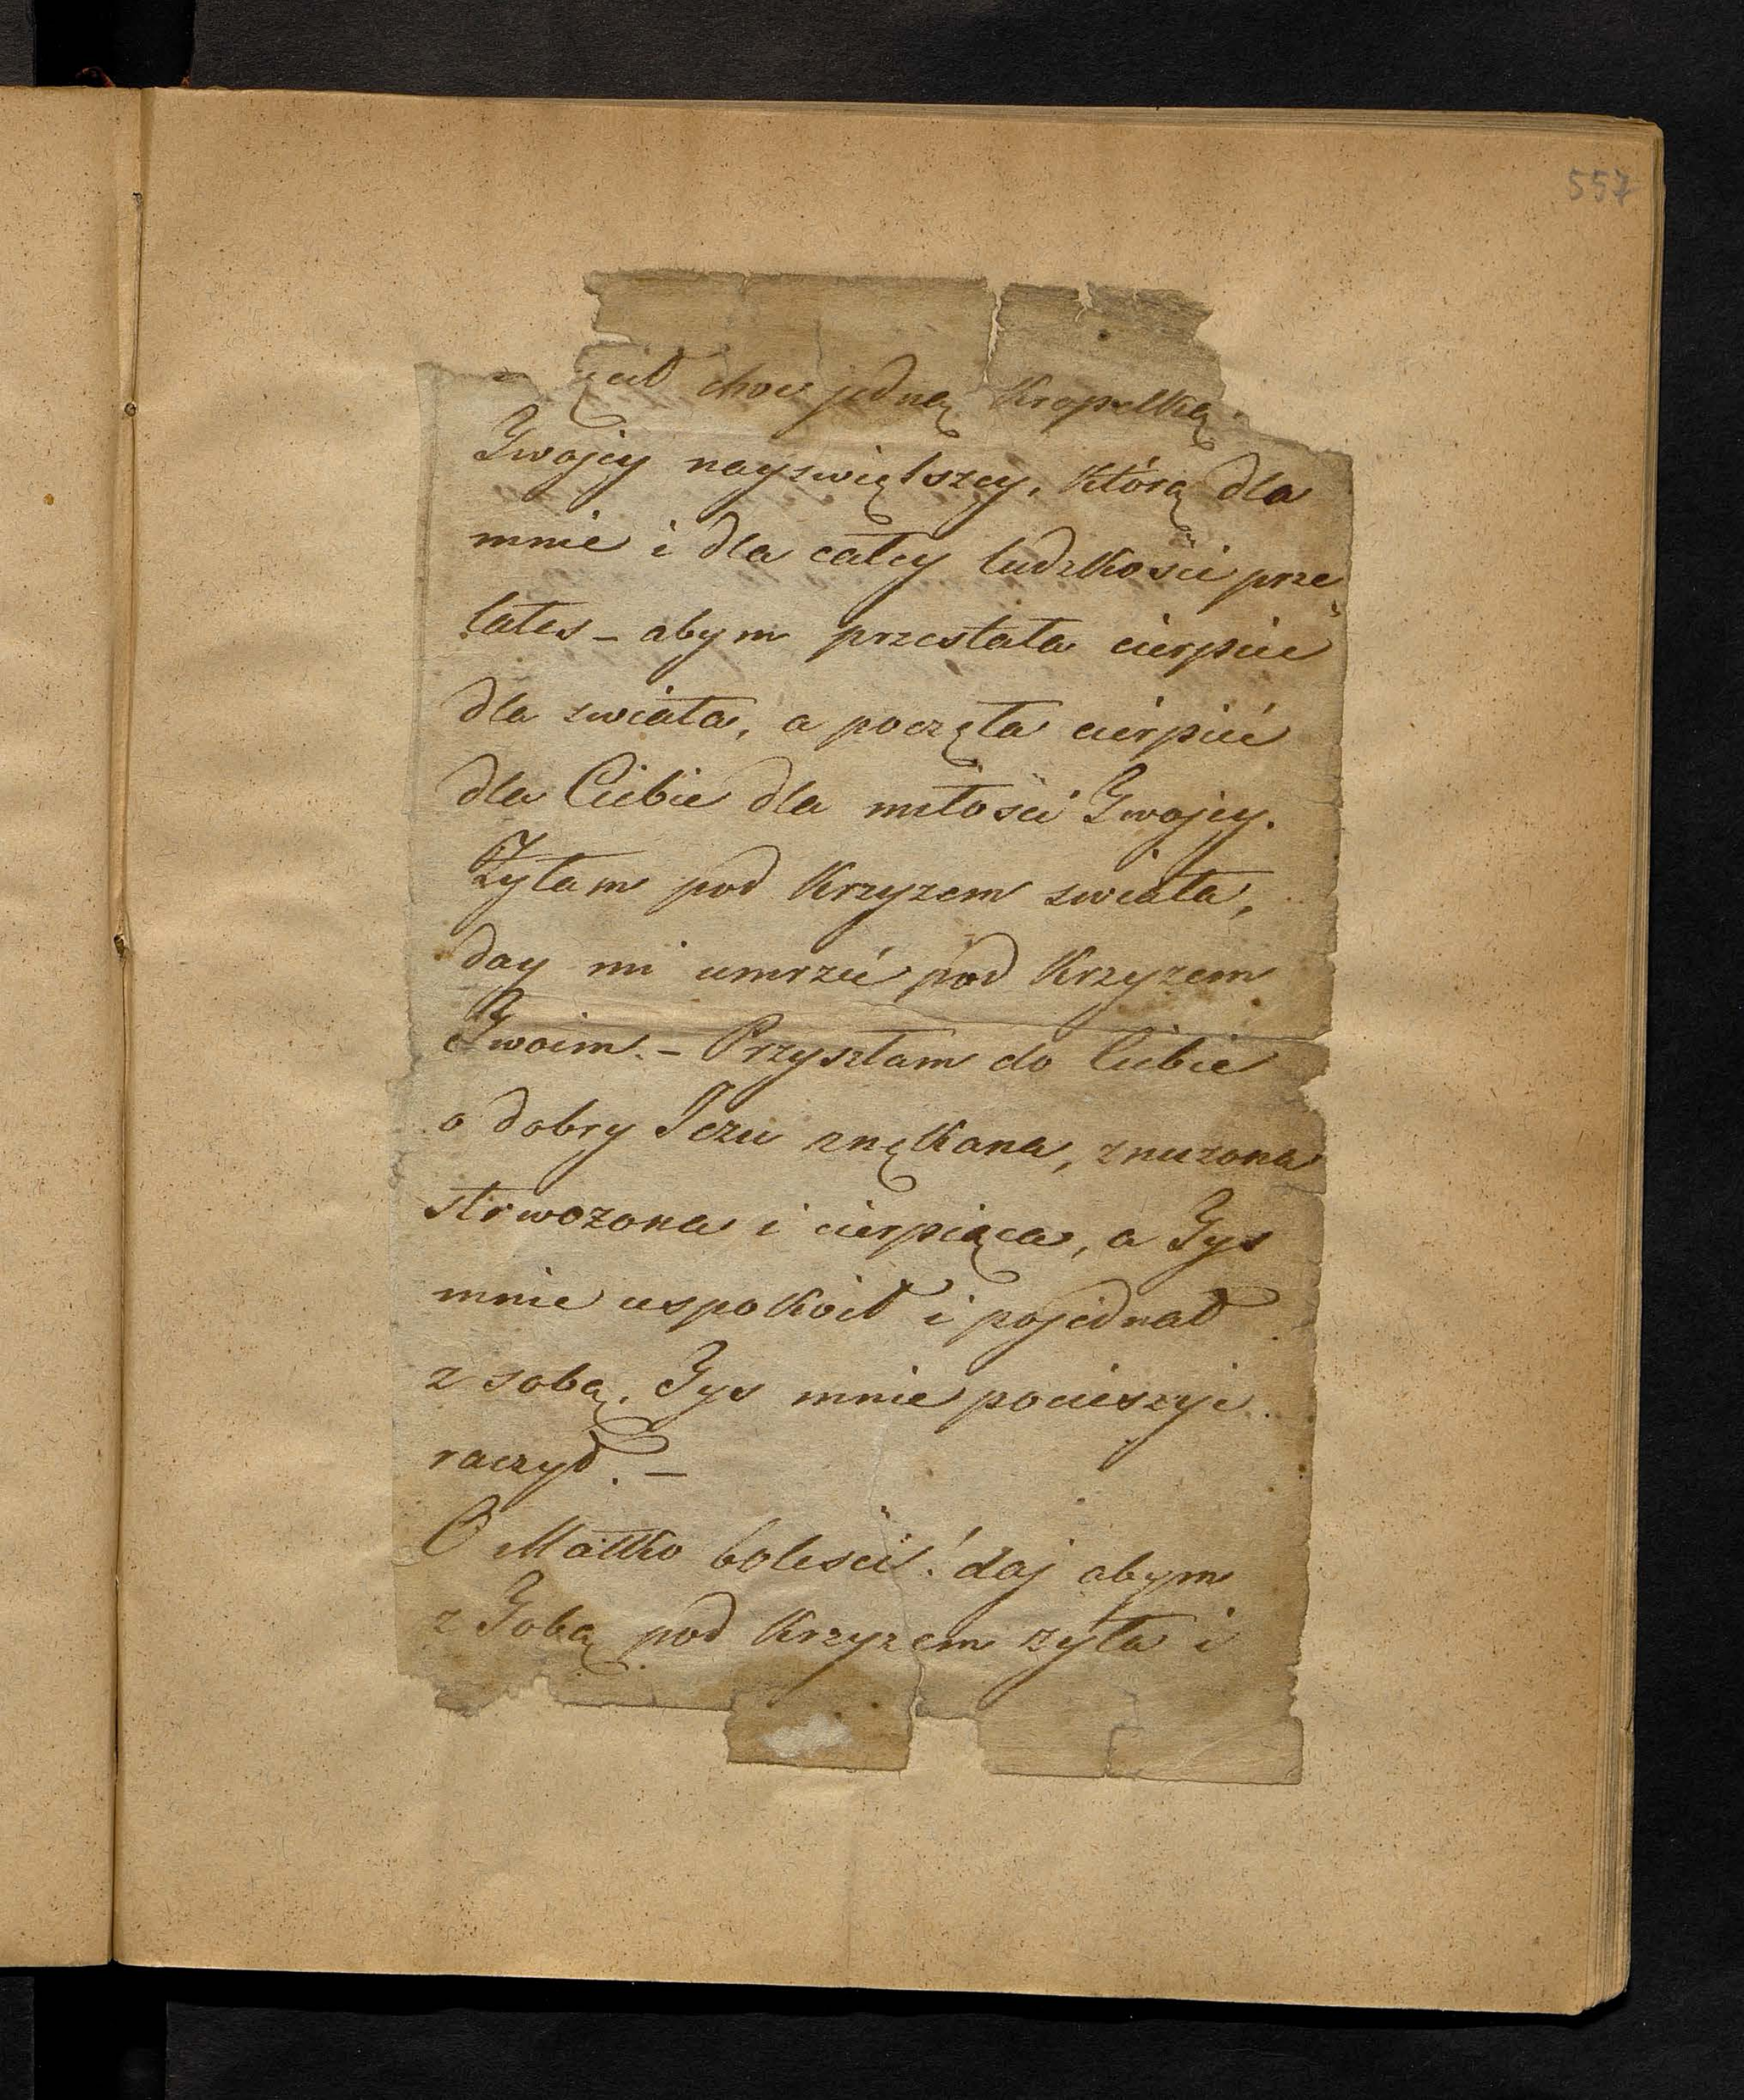 557
choc jedną kropelką
Twojey nayświętszey, którą dla
mnie i dla całey ludzkości prze
łałeś – abym przestała cierpieć
dla swiata, a poczęła cierpieć
dla Ciebie dla miłości Twojey.
Żyłam pod krzyzem swiata,
day mi umrzeć pod krzyzem
Twoim. – Przyszłam do Ciebie
o dobry Jezu znękana, znuzona
strwożona i cierpiąca, a Tyś
mnie uspokoił i pojednał
z sobą, Tyś mnie pocieszyć
raczył. –
O Matko boleści! daj abym
z Tobą pod krzyzem zyła i